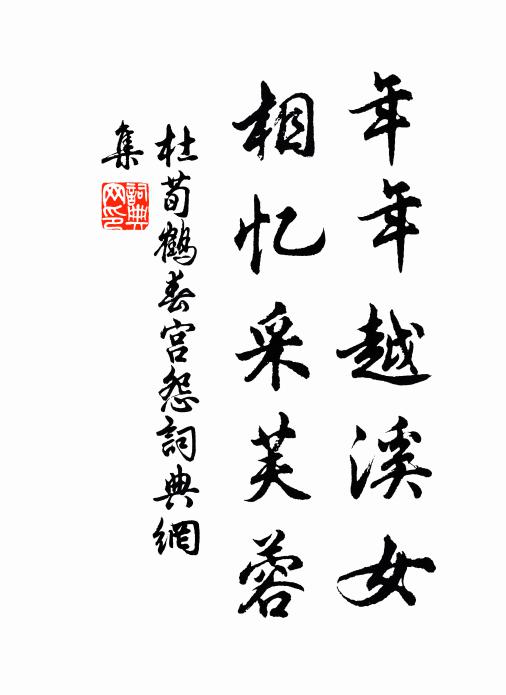 年年越溪女
相忆采芙蓉
杜荀鹤春宫怨詞典網
集
詞典网印